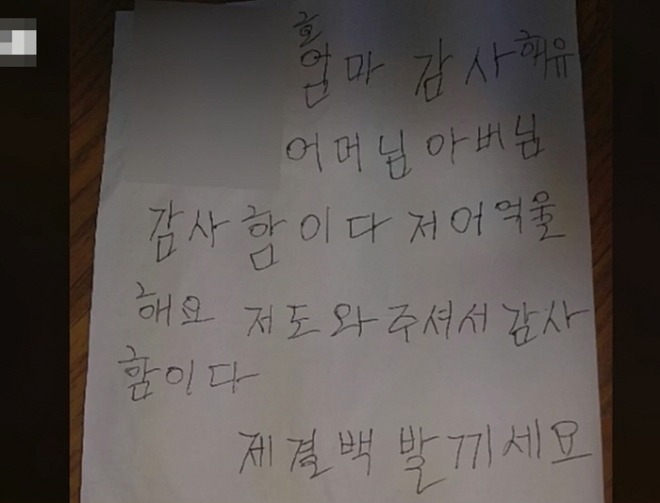 엄마 감사해유
어머님 아버님
감사 함이다 저어억울
해요 저도와주셔서 감사
함이다
제결백 발끼세요